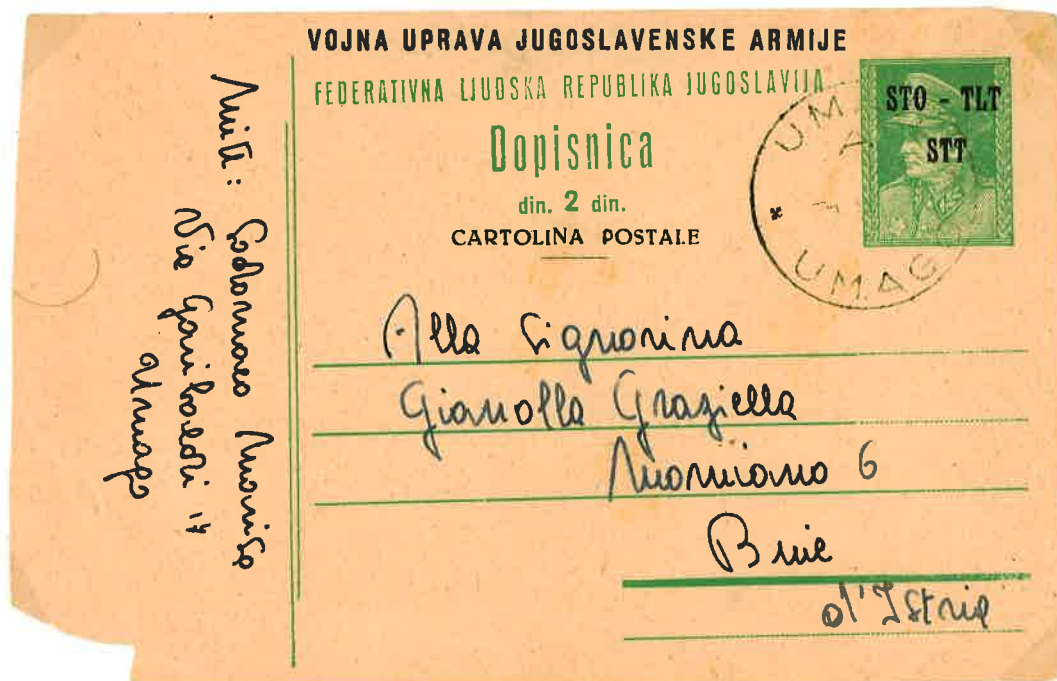 VOJNA UPRAVA JUGOSLAVENSKE ARMIJE
FEDERATIVNA LJUDSKA REPUBLIKA JUGOSLAVIJA
Dopisnica
din. 2 din.
CARTOLINA POSTALE
STO - TLT
STT
UMAG
Alla Signorina
Gianolla Graziella
Momiano 6
Buie
d'Istria
Mitt:
Via Garibaldi 17
Umago